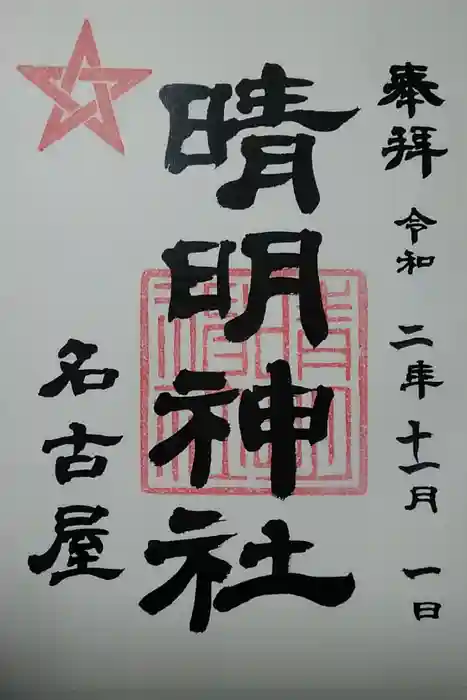 奉拝 令和二年十一月一日
晴明神社
名古屋